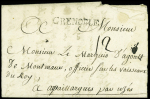 GRENOBLE
A Monsieur
12
Monsieur Le Marquis D'agoult
De Montmaur, officier sur les vaisseaux
Du Roy
a